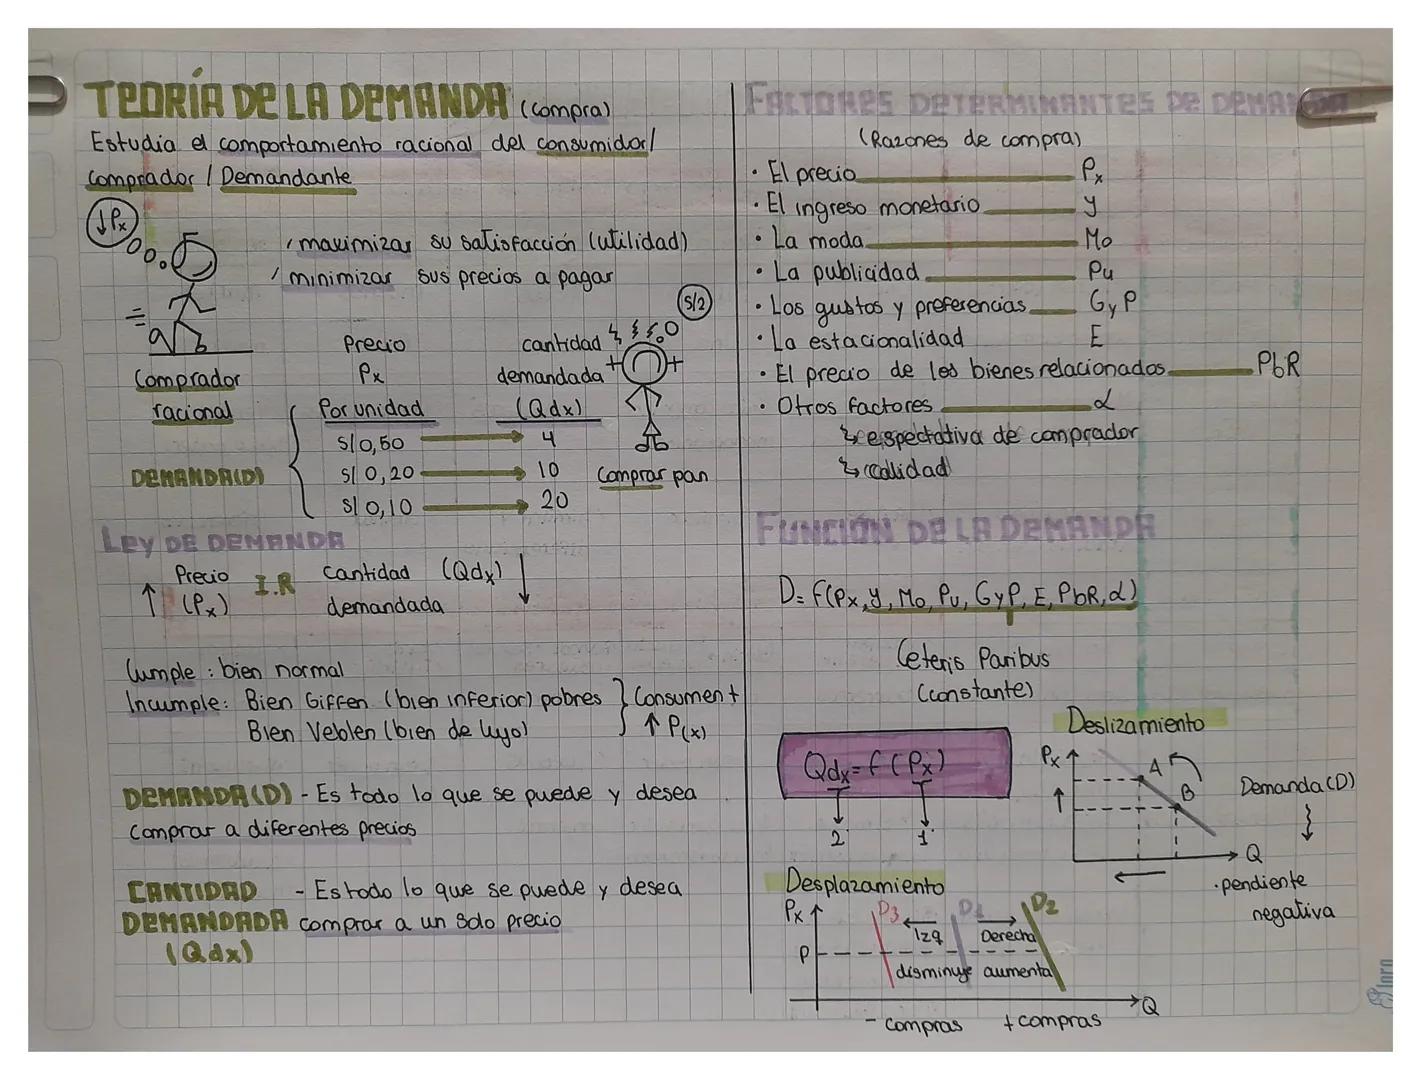 TEORÍA DE LA DEMANDA (compra)
Estudia el comportamiento racional del consumidor/
comprador / Demandante
↓Px
, maximizar su satisfacción (utilidad)
/ minimizar sus precios a pagar
S/2
Comprador
racional
DEMANDA(D)
Precio
Px
Por unidad
cantidad
demandada
(Qdx)
S/0,50 → 4
S/0,20 → 10
S/0,10 → 20
Comprar pan
LEY DE DEMANDA
↑ Precio (Px) I.R cantidad demandada (Qdx) ↓
Cumple : bien normal
Incumple: Bien Giffen (bien inferior) pobres
Bien Veblen (bien de lujo)
} Consumen +
↑ P(x)
DEMANDA(D) - Es todo lo que se puede y desea
comprar a diferentes precios
CANTIDAD - Es todo lo que se puede y desea
DEMANDADA comprar a un solo precio
(Qdx)
FACTORES DETERMINANTES DE
(Razones de compra)
· El precio Px
· El ingreso monetario y
· La moda Mo
· La publicidad Pu
· Los gustos y preferencias GyP
· La estacionalidad E
· El precio de los bienes relacionados PbR
· Otros factores α
↳ espectativa de comprador
↳ calidad
FUNCIÓN DE LA DEMANDA
D= F(Px, y, Mo, Pu, GyP, E, PbR, α)
Ceteris Paribus
(constante)
Qdx= f (Px)
2 1
Deslizamiento
Px ↑
A
B
Q
Demanda (D)
· pendiente
negativa
Desplazamiento
Px ↑
D3 D1 D2
Izq Derecha
P
disminuye aumenta
Q
- compras + compras